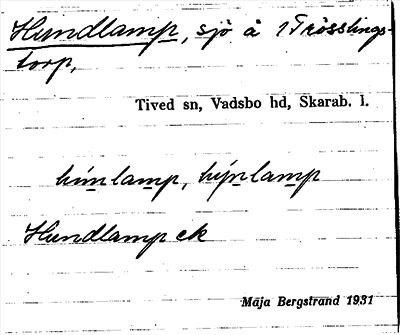 Hundlamp, sjö å 1 Trösslings-
torp,
Tived sn, Vadsbo hd, Skarab. l.
húnlamp, hýnlamp
Hundlamp ek
Maja Bergstrand 1931